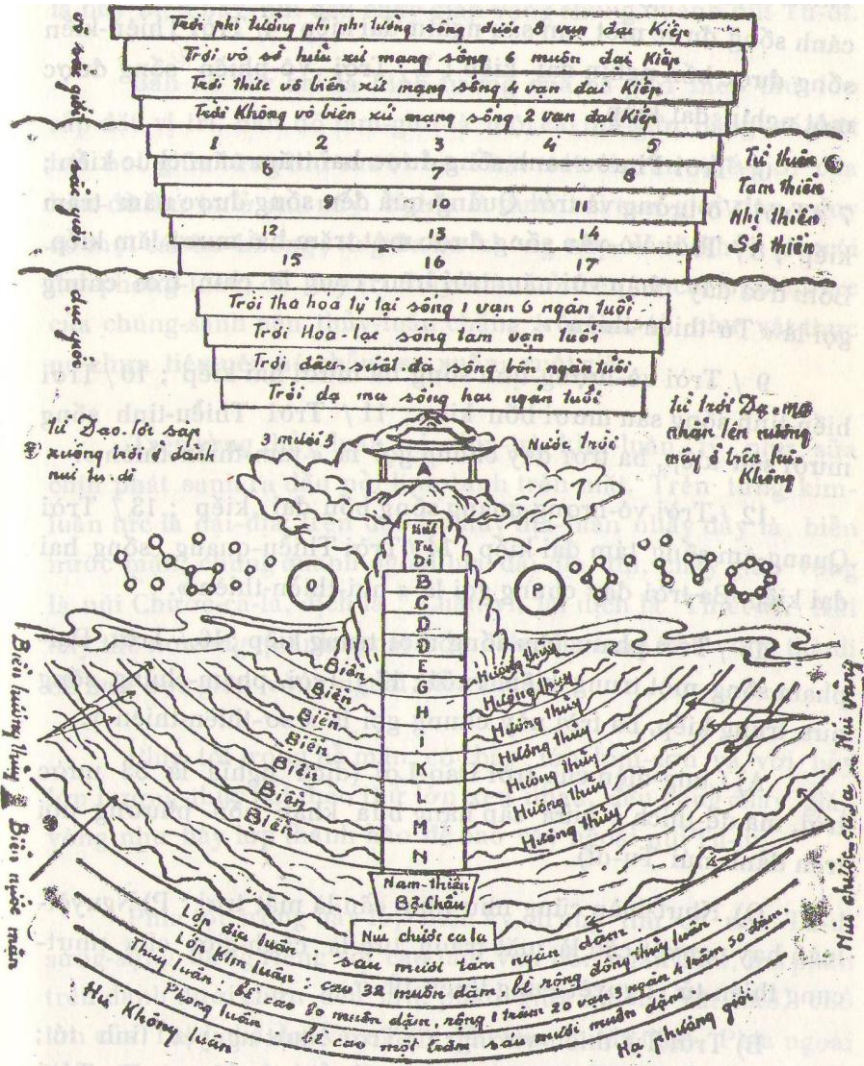 Trời phi tưởng phi phi tưởng sống được 8 vạn đại Kiếp
Trời vô sở hữu xứ mạng sống 6 vạn đại Kiếp
Trời thức vô biên xứ mạng sống 4 vạn đại Kiếp
Trời Không vô biên xứ mạng sống 2 vạn đại Kiếp
1 2 3 4 5
6 7 8
9 10 11
12 13 14
15 16 17
Tứ thiên
Tam thiên
Nhị thiên
Sơ thiên
Vô sắc giới
sắc giới
dục giới
Trời tha hóa tự tại sống 1 vạn 6 ngàn tuổi
Trời Hóa-lạc sống tám vạn tuổi
Trời đâu-suất đa sống bốn ngàn tuổi
Trời dạ ma sống hai ngàn tuổi
từ Đao-lợi sắp
xuống trời ở đảnh
núi tu di
từ trời Dạ-ma
nhẫn lên nương
mây ở trên hư
Không
3 mươi 3
Nước trời
A
Núi
Tu
Di
B
D
Đ
E
G
H
I
K
L
M
N
Biển
Biển
Biển
Biển
Biển
Biển
Biển
Hương thủy
Hương thủy
Hương thủy
Hương thủy
Hương thủy
Hương thủy
Hương thủy
Biển hương thủy
Biển nước mặn
Núi chiết-ca-la
Núi vàng
Nam-thiên
Bộ Châu
Núi chiết ca la
Lớp địa luân : sáu mươi tám ngàn dặm
Lớp Kim luân : cao 38 muôn dặm, bề rộng đồng thủy luân
Thủy luân bề cao 80 muôn dặm, rộng 1 trăm 20 vạn 3 ngàn 4 trăm 50 dặm
Phong luân bề cao một trăm sáu mươi muôn dặm
Hư Không luân
Hạ phương giới